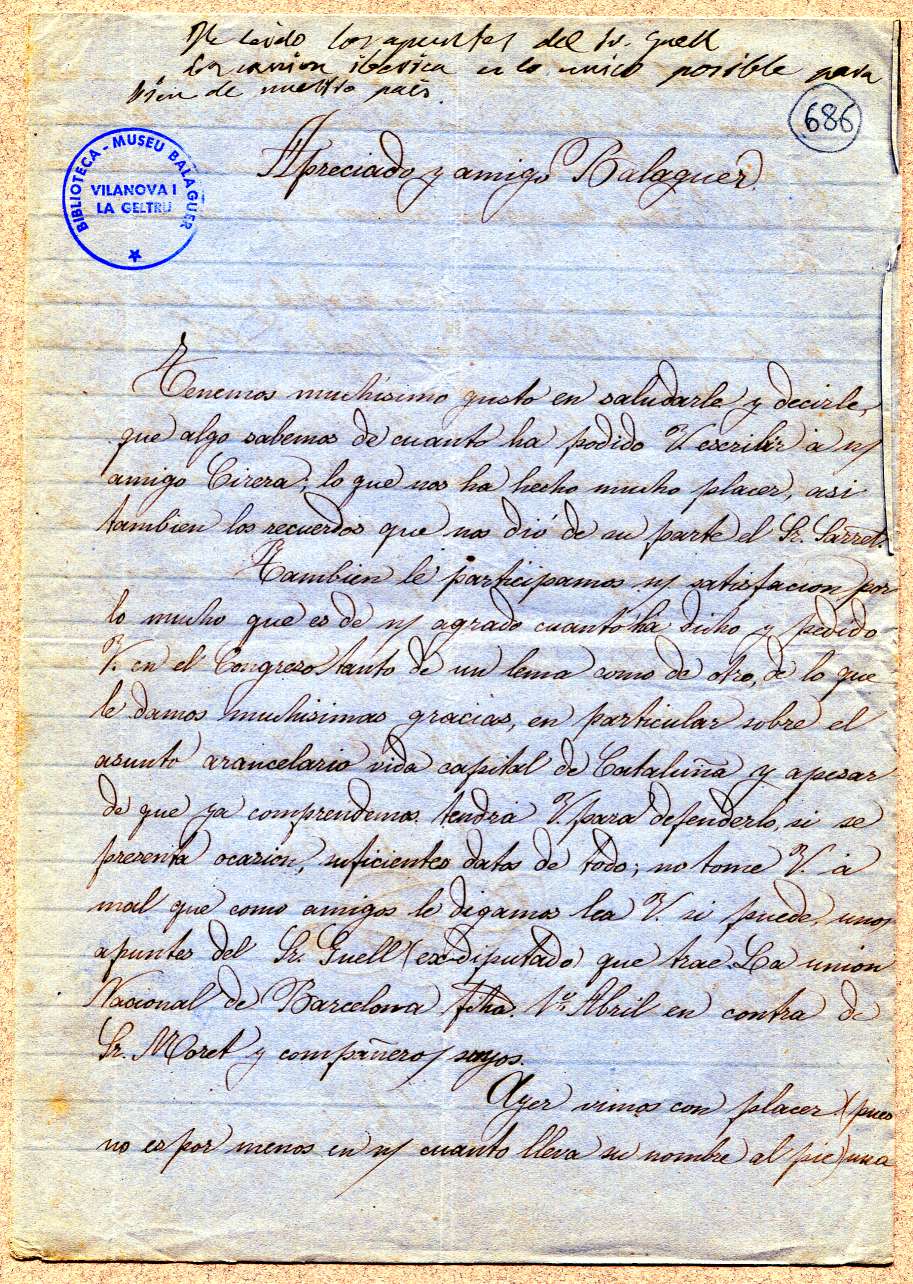 He leido los apuntes del Sr. Guell
La union iberica es lo unico posible para
bien de nuestro pais.
686
BIBLIOTECA - MUSEU BALAGUER
VILANOVA I
LA GELTRU
Apreciado y amigo Balaguer.
Tenemos muchisimo gusto en saludarle y decirle,
que algo sabemos de cuanto ha podido V. escribir á n/
amigo Cirera; lo que nos ha hecho mucho placer, asi
tambien los recuerdos que nos dió de su parte el Sr. Sarret.
Tambien le participamos n/ satisfacion por
lo mucho que es de n/ agrado cuanto ha dicho y pedido
V. en el Congreso tanto de un lema como de otro, de lo que
le damos muchisimas gracias, en particular sobre el
asunto arancelario vida capital de Cataluña y apesar
de que ya comprendemos tendrá V. para defenderlo, si se
presenta ocasion, suficientes datos de todo; no tome V. á
mal que como amigos le digamos lea V. si puede, unos
apuntes del Sr. Guell (ex-diputado) que trae La union
Nacional de Barcelona fcha. 1º. Abril en contra de
Sr. Moret y compañeros suyos.
Ayer vimos con placer (pues
no es por menos en n/ cuanto lleva su nombre al pie) una